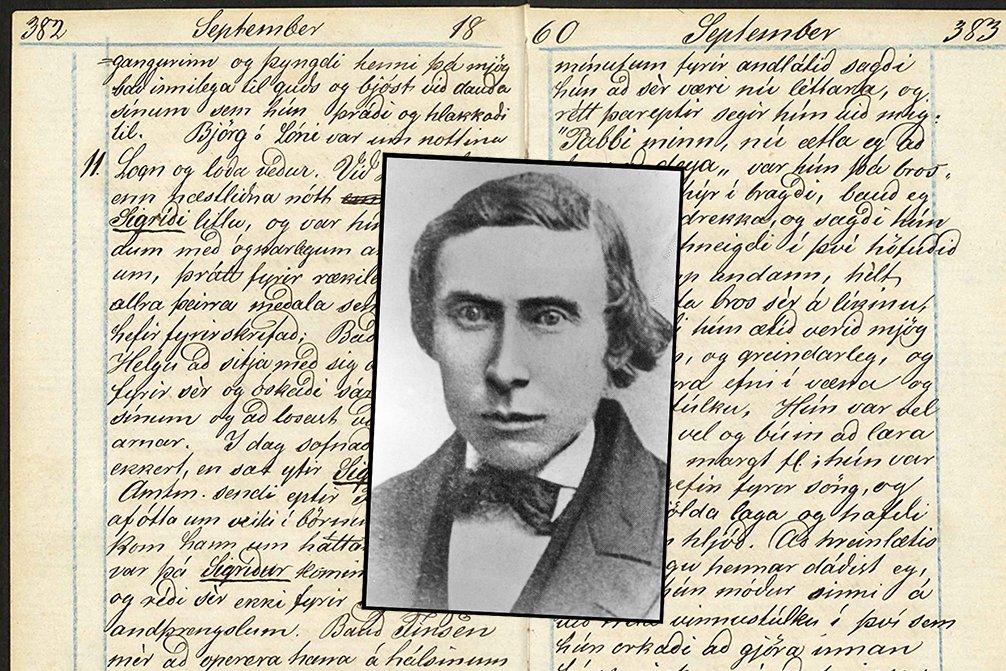 382 September 18
=gangurinn og þyngdi henni þá mjög
bað innilega til guðs og bjóst við dauða
sínum sem hún þráði og hlakkaði
til. Björg á Lóni var um nóttina
11. Logn og loða veður. Við
enn næstliðna nótt
Sigríði litlu, og var hún
dum með ógnarlegum a
um, þrátt fyrir rækile
allra þeirra meðala sem
hefir fyrirskrifað; Bað
Helgu að sitja með sig á
fyrir sér og óskaði sár
sínum og að losast
arnar. I dag sofnað
ekkert, en sat yfir Sig
Amtm. sendi eptir
af ótta um veiki í börnum
kom hann um hátta
var þá Sigríður komin
og réði sér ekki fyrir
andþrengslum. Bauð Finsen
mér að operera hana á hálsinum
60 September 383
mínutum fyrir andlátið sagði
hún að sér væri nú léttara, og
rétt þareptir segir hún við mig:
"Pabbi minn, nú ætla eg að
deya„ var hún þá bros=
hýr í bragði, bauð eg
drekka, og sagði hún
hneigði í því höfuðið
andann, hélt
bros sér á líkinu.
hún ætíð verið mjög
og greindarleg, og
efni í væna og
stúlku, Hún var vel
vel og búin að læra
margt fl: hún var
gefin fyrir söng, og
fjölda laga og hafði
hljóð. Að hreinlætis
hennar dáðist eg,
hún móður sinni á
við vinnustúlku í því sem
hún orkaði að gjöra innan